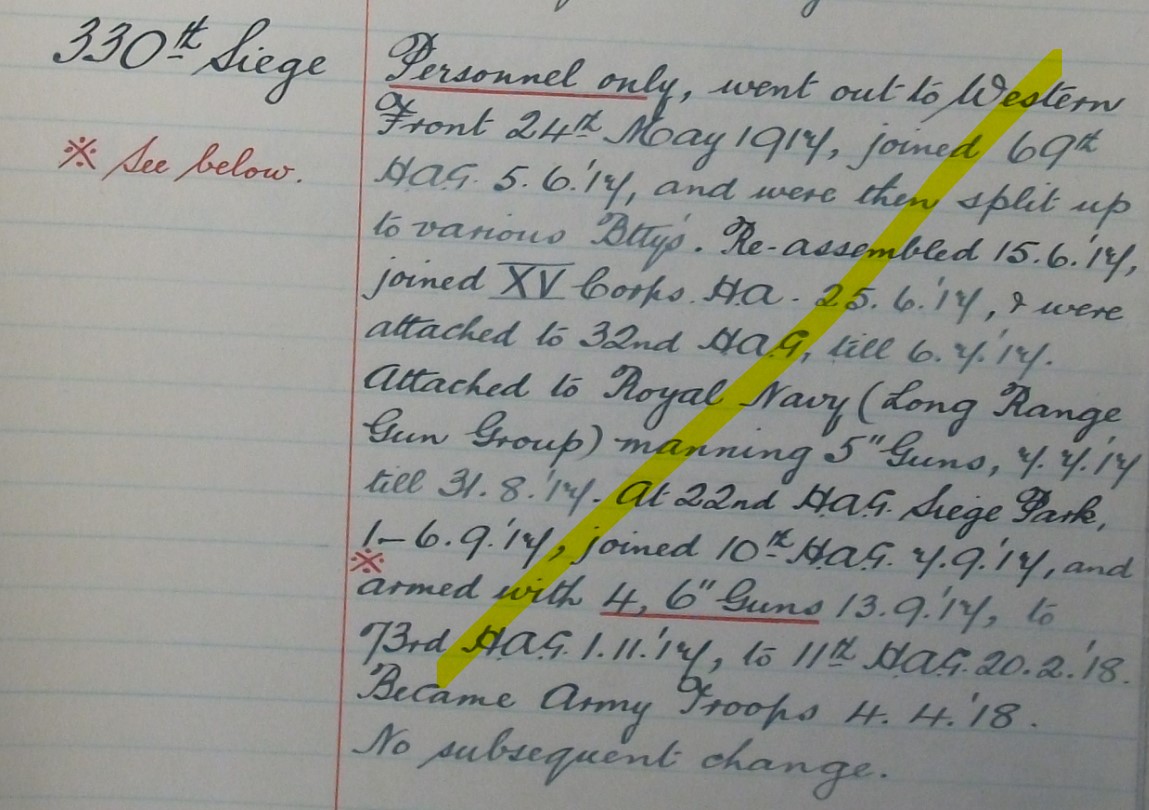 330th Siege
※ See below.
Personnel only, went out to Western
Front 24th May 1917, joined 69th
H.A.G. 5.6.'17, and were then split up
to various Bttys. Re-assembled 15.6.'17,
joined XV Corps. H.A. 25.6.'17, & were
attached to 32nd H.A.G, till 6.7.'17.
Attached to Royal Navy (Long Range
Gun Group) manning 5" Guns, 7.7.'17
till 31.8.'17. At 22nd H.A.G. Siege Park,
1-6.9.'17, joined 10th H.A.G. 7.9.'17, and
※
armed with 4, 6" Guns 13.9.'17, to
73rd H.A.G. 1.11.'17, to 11th H.A.G. 20.2.'18.
Became Army Troops 4.4.'18.
No subsequent change.